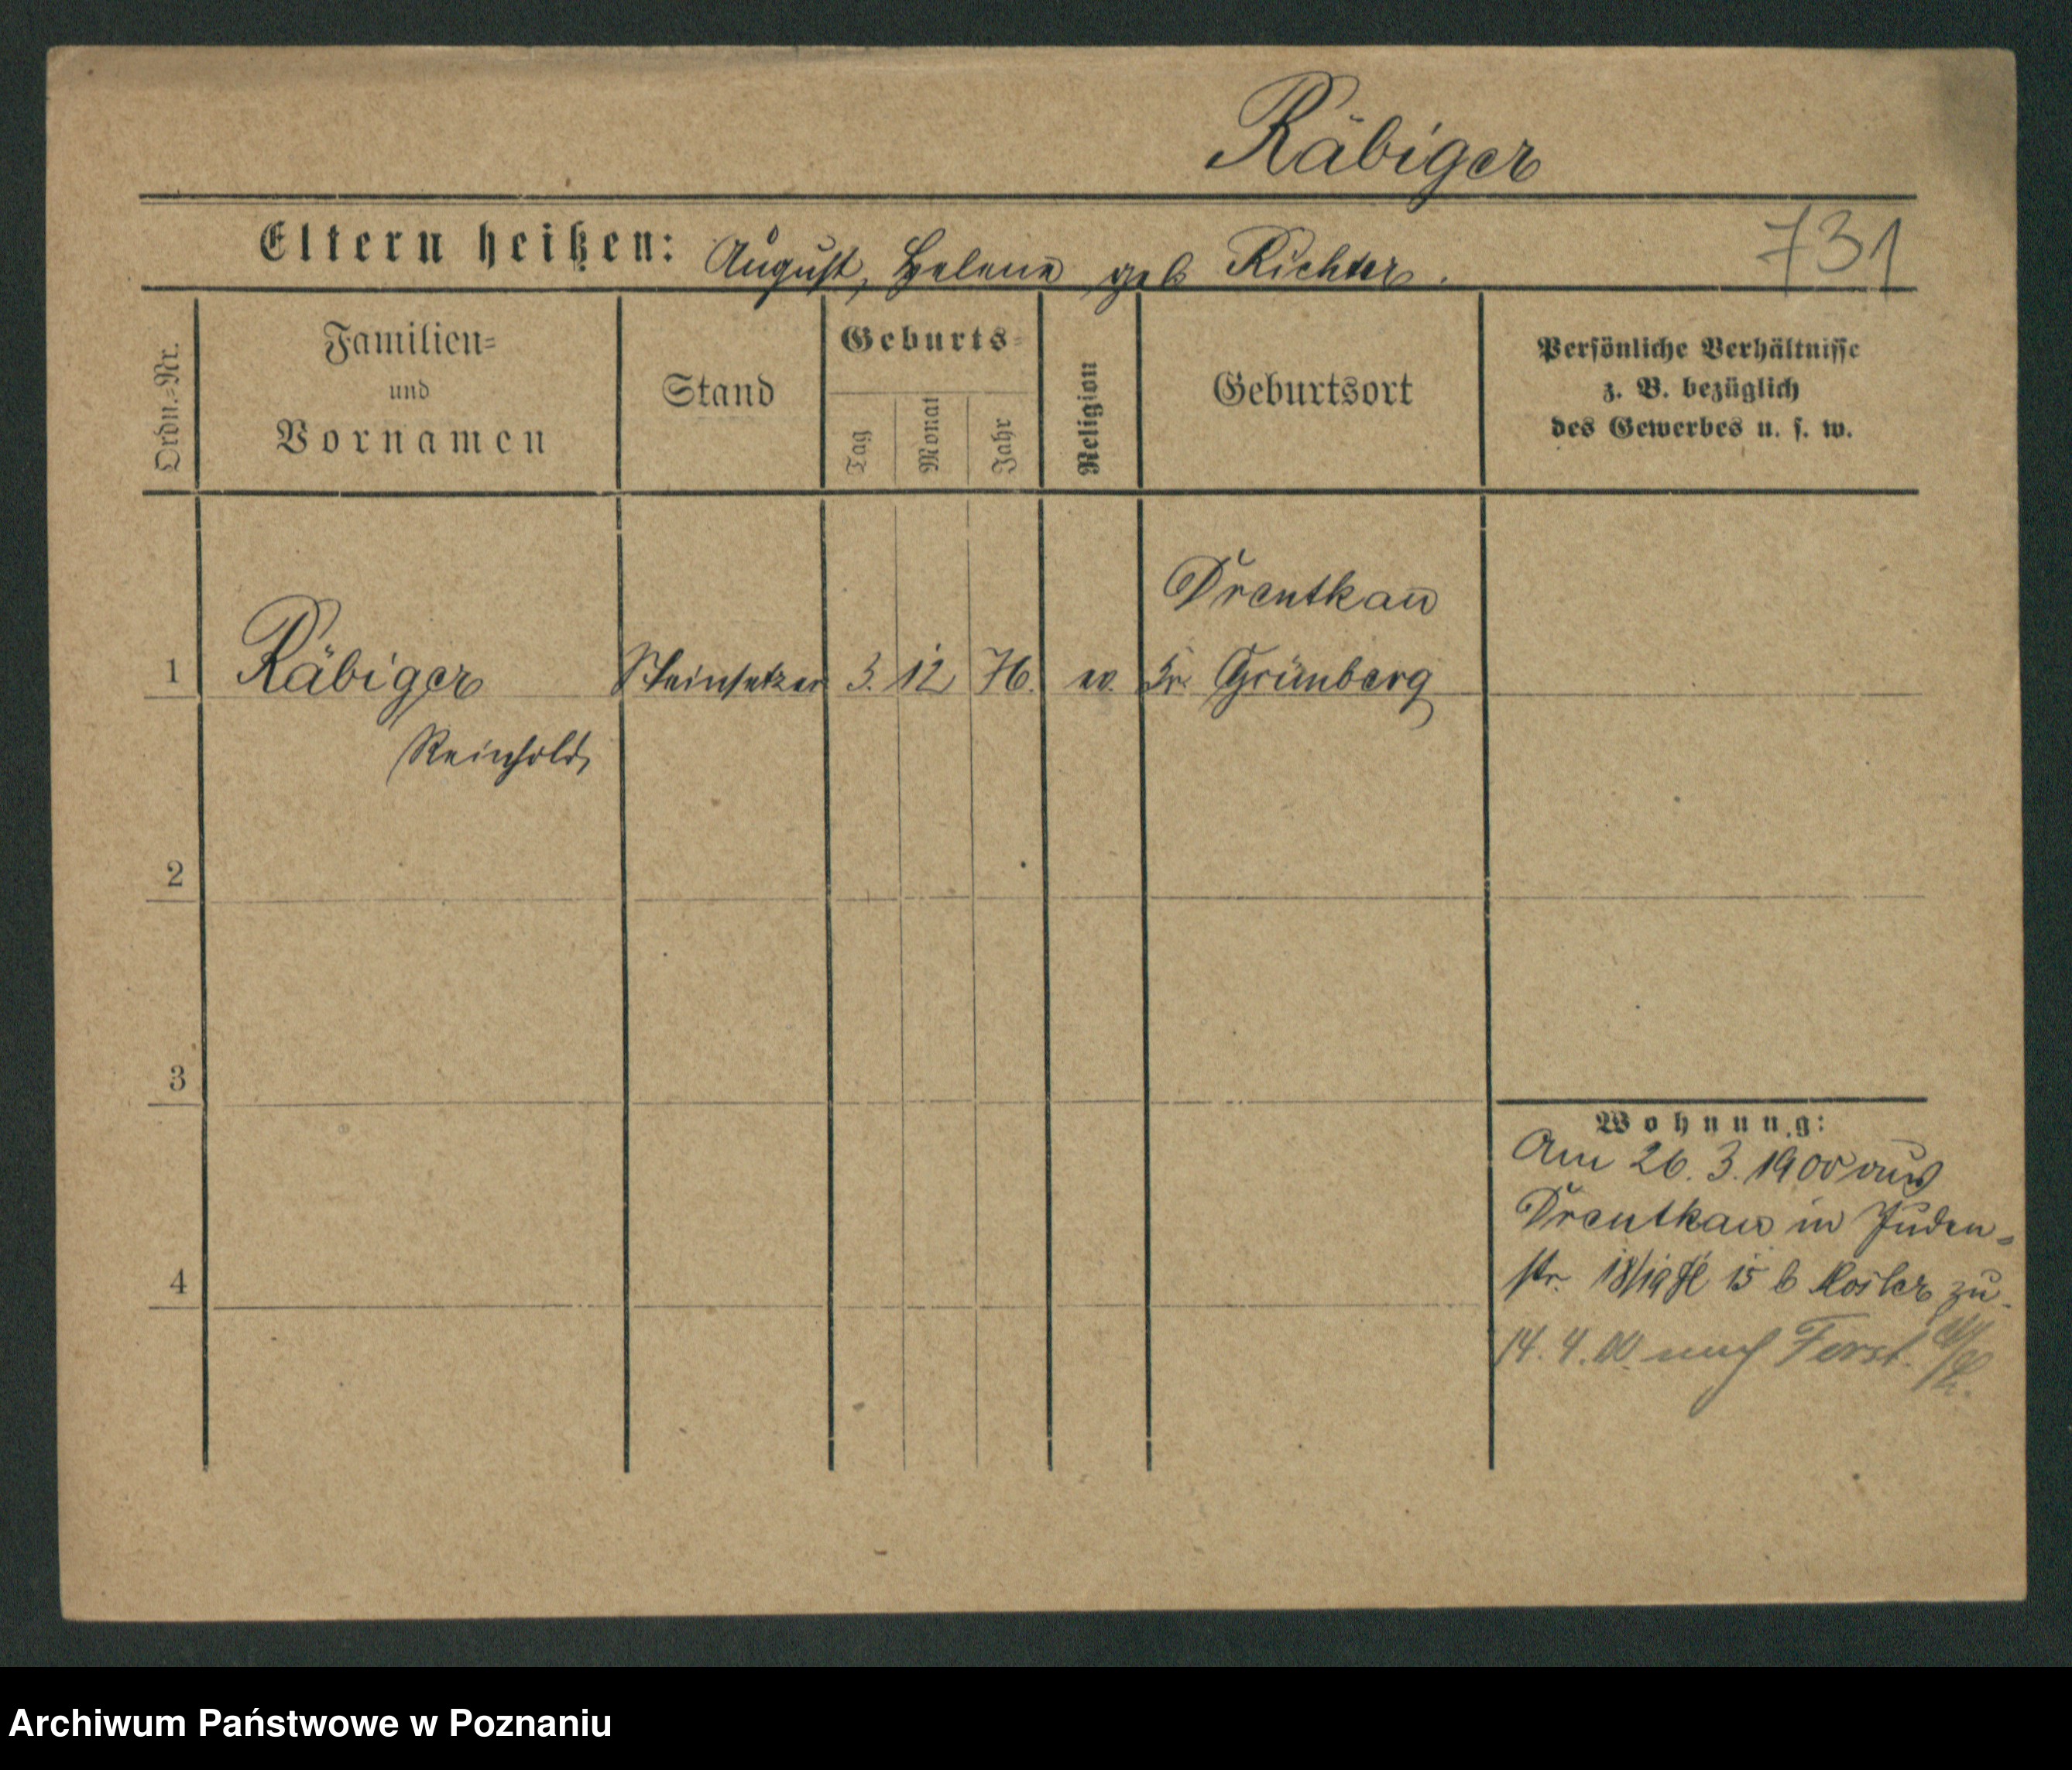 Räbiger
Eltern heißen: August, Helene geb Richter.
731
Ordn.=Nr.
Familien=
und
Vornamen
Stand
Geburts=
Tag
Monat
Jahr
Religion
Geburtsort
Persönliche Verhältnisse
z. B. bezüglich
des Gewerbes u. s. w.
Drentkau
1 Räbiger Steinsetzer 3. 12 76. ev. Kr. Grünberg
Reinhold
2
3
4
Wohnung:
Am 26. 3. 1900 aus
Drentkau in Juden=
str. 18/19 15 b Kosler zu.
14. 4. 00. nach Forst.
Archiwum Państwowe w Poznaniu